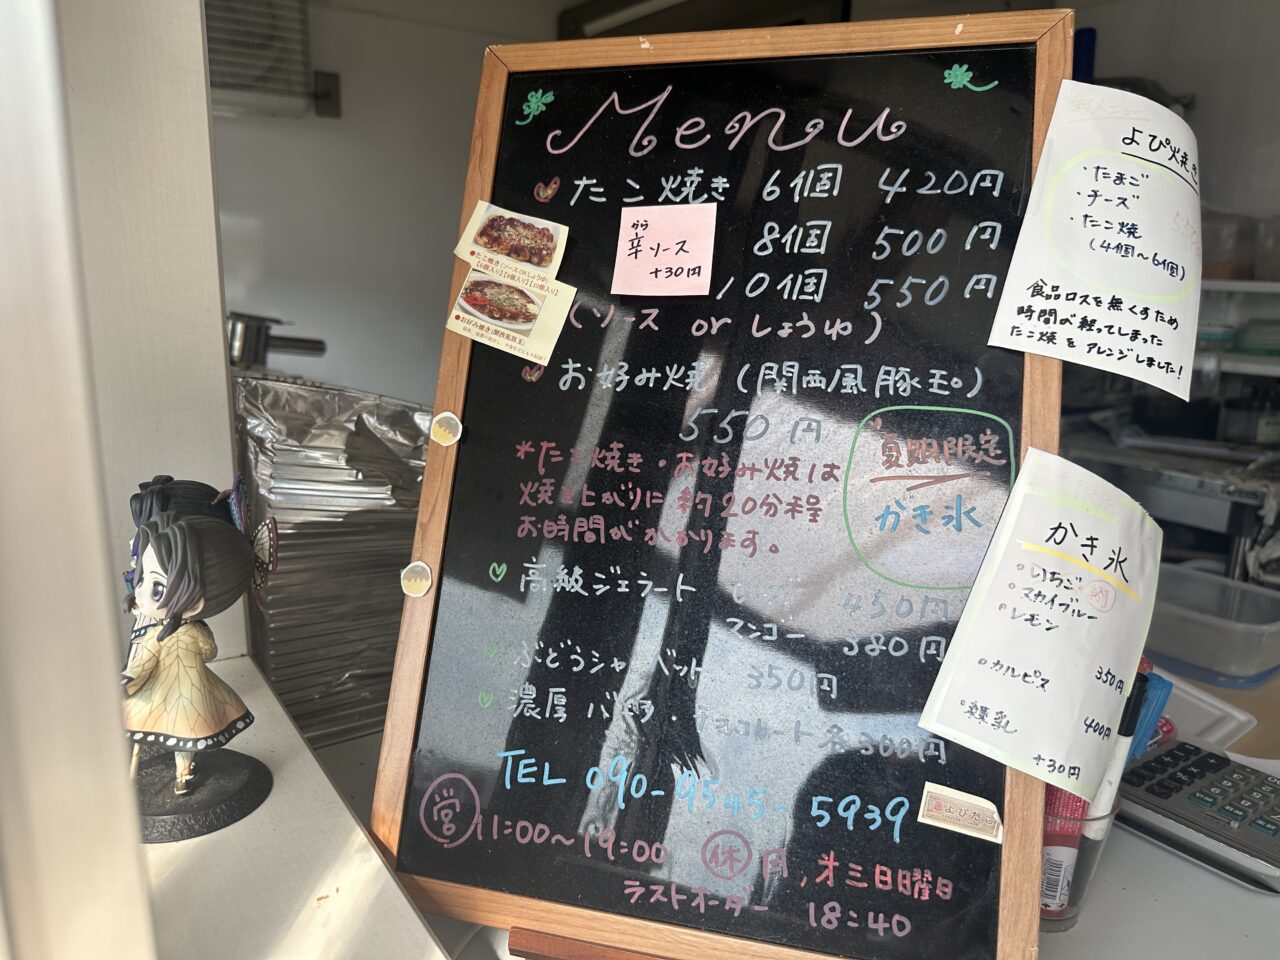 Menu
たこ焼き 6個 420円
8個 500円
10個 550円
から
辛ソース
+30円
(ソース or しょうゆ)
●たこ焼き(ソースORしょうゆ)
【6個入り】【8個入り】【10個入り】
●お好み焼き(関西風豚玉)
お好み焼(関西風豚玉)
550円
*たこ焼き・お好み焼は
焼き上がりに約20分程
お時間がかかります。
夏期限定
かき氷
高級ジェラート 450円
マンゴー 380円
ぶどうシャーベット 350円
濃厚バニラ・チョコレート各300円
TEL 090-9545-5939
営 11:00~19:00 休 月,第三日曜日
ラストオーダー 18:40
よびたこ
新メニュー
よび焼き
・たまご
・チーズ
・たこ焼
(4個~6個)
550
食品ロスを無くすため
時間が経ってしまった
たこ焼をアレンジしました!
かき氷
いちご
スカイブルー
レモン
カルピス
350円
練乳
400円
+30円